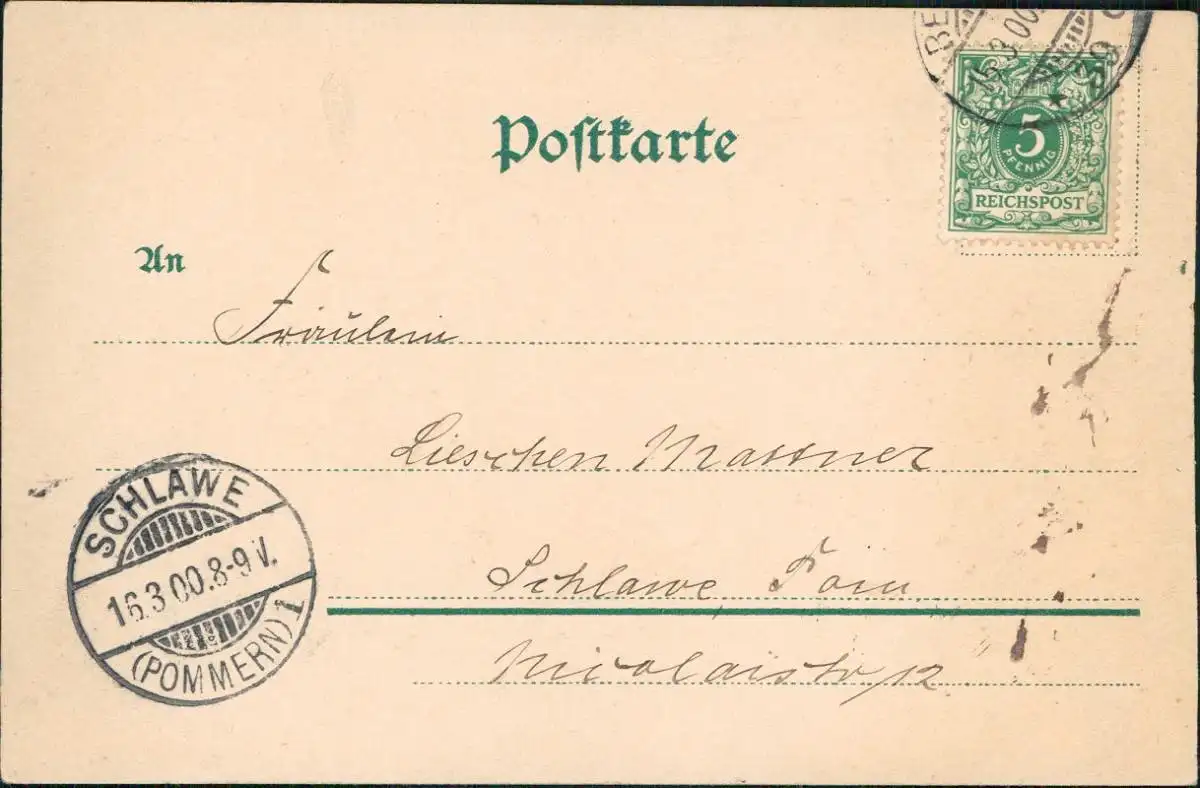 BE
16.3.00.
Postkarte
5
PFENNIG
REICHSPOST
An
Fräulein
Lieschen Massner
Schlawe Pom
Nicolaistr 12
SCHLAWE
16.3.00.8-9 V.
(POMMERN) 1